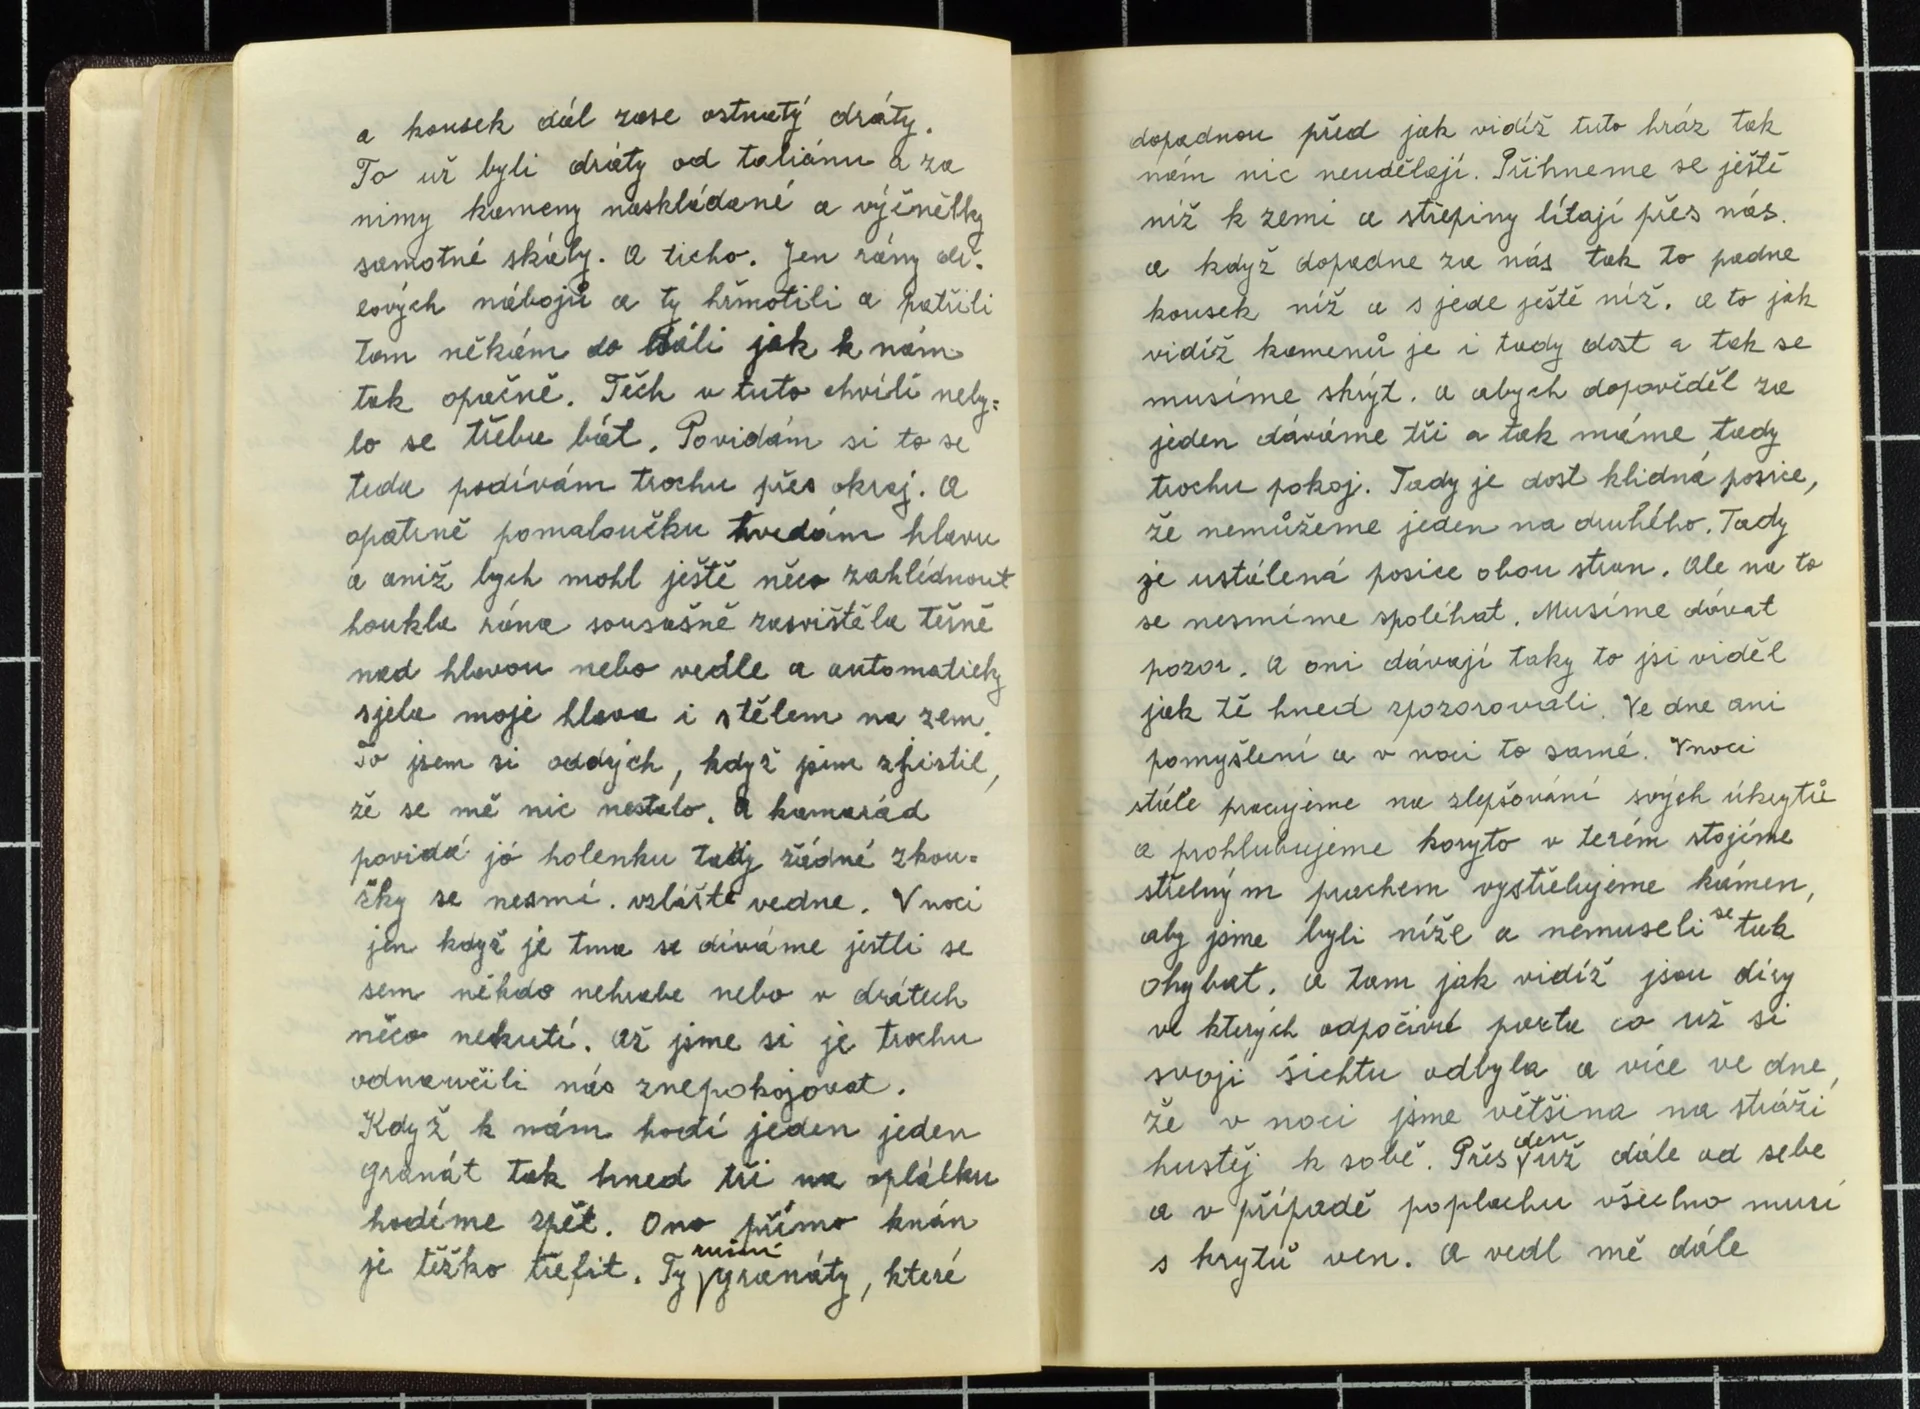 a kousek dál zase ostnatý dráty.
To už byli dráty od taliánu a za
nimy kameny naskládané a výčnělky
samotné skály. A ticho. Jen rány
cových nábojů a ty hřmotili a patřili
tam někám do dáli jak k nám
tak opačně. Těch v tuto chvíli neby=
lo se třeba bát. Povidám si to se
teda podívám trochu přes okraj. A
opatrně pomaloučku hvedám hlavu
a aniž bych mohl ještě něco zahlédnout
houkla rána sousašně zasvištěla těšně
nad hlavou nebo vedle a automaticky
sjela moje hlava i stělem na zem.
To jsem si oddých, když jsem zjistil,
že se mě nic nestalo. A kamarád
povidá jó holenku tady žádné zkou=
šky se nesmí. vzláště vedne. V noci
jen když je tma se díváme jestli se
sem někdo nehrabe nebo v drátech
něco nekutí. Až jsme si je trochu
odnaučili nás znepokojovat.
Když k nám hodí jeden jeden
granát tak hned tři na oplálku
hodíme zpět. Ono přímo knán
je těžko třefit. Ty ruční granáty, které
dopadnou před jak vidíš tuto hráz tak
nám nic neudělají. Přihneme se ještě
níž k zemi a střepiny lítají přes nás.
a když dopadne za nás tak to padne
kousek níž a sjede ještě níž. a to jak
vidíš kamenů je i tady dost a tak se
musíme skrýt. A abych dopověděl za
jeden dáváme tři a tak máme tady
trochu pokoj. Tady je dost klidná posice,
že nemůžeme jeden na druhého. Tady
je ustálená posice obou stran. Ale na to
se nesmíme spoléhat. Musíme dávat
pozor. A oni dávají taky to jsi viděl
jak tě hned zpozorovali. Ve dne ani
pomyšlení a v noci to samé. V noci
stále pracujeme na zlepšování svých úkrytů
a prohlubujeme koryto v terém stojíme
střelným prachem vystřelujeme kámen,
aby jsme byli níže a nemuseli se tak
ohybat. A tam jak vidíš jsou díry
ve kterých odpočívá parta co už si
svoji šichtu odbyla a více ve dne,
že v noci jsme většina na stráži
hustěj k sobě. Přes den už dále od sebe
a v případě poplachu všechno musí
s krytů ven. A vedl mě dále